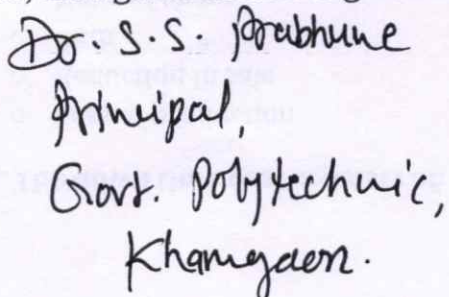 Dr. S. S. Prabhune
Principal,
Govt. Polytechnic,
Khamgaon.